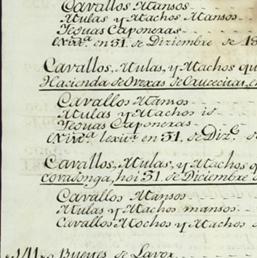 Cavallos Mansos
Mulas y Machos Mansos
Yeguas Caponeras
en 31 de Diciembre de 18
Cavallos, Mulas, y Machos qu
Hacienda de Ovexas de
Cavallos Mansos
Mulas y Machos id
Yeguas Caponeras
en 31. de Diz.e de
Cavallos, Mulas, y Machos q
covadonga, hoi 31 de Diciembre
Cavallos Mansos
Mulas y Machos mansos
Cavallos Mochos y Machos
Bueyes de Lavor